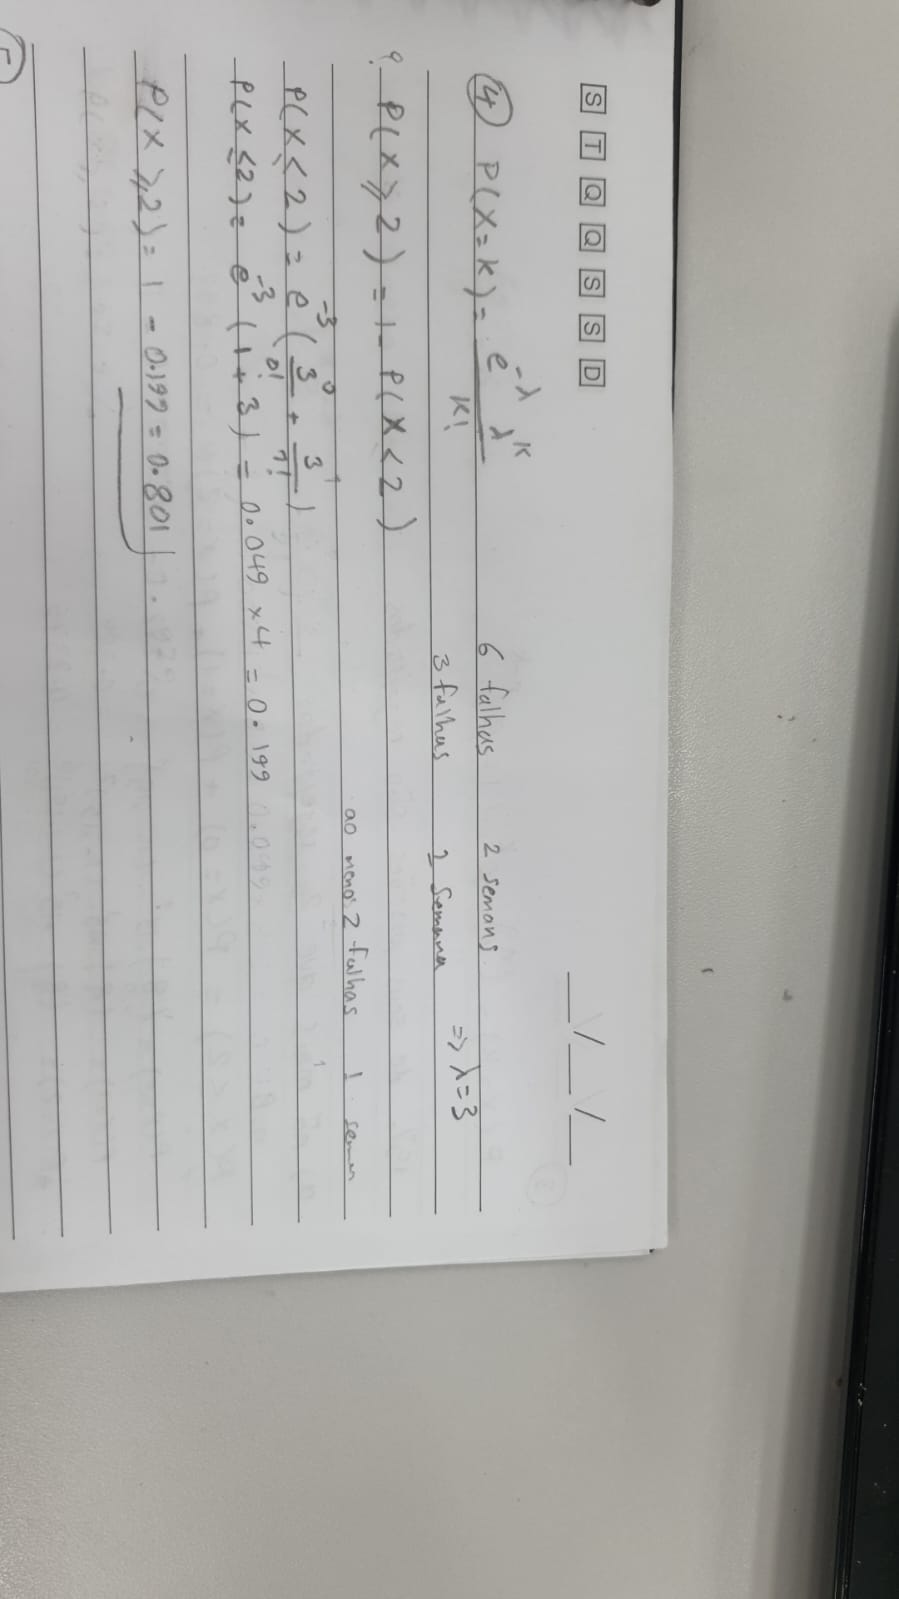 S T Q Q S S D
__/__/__
④ P(X=K) = e^-λ λ^K / K!
6 falhas 2 semans
3 falhas 1 semana => λ=3
? P(X⩾2) = 1 - P(X<2)
ao menos 2 falhas 1 seman
P(X<2) = e^-3 (3^0/0! + 3^1/1!)
P(X≤2) = e^-3 (1+3) = 0.049 x4 = 0.199
P(X⩾2) = 1 - 0.199 = 0.801